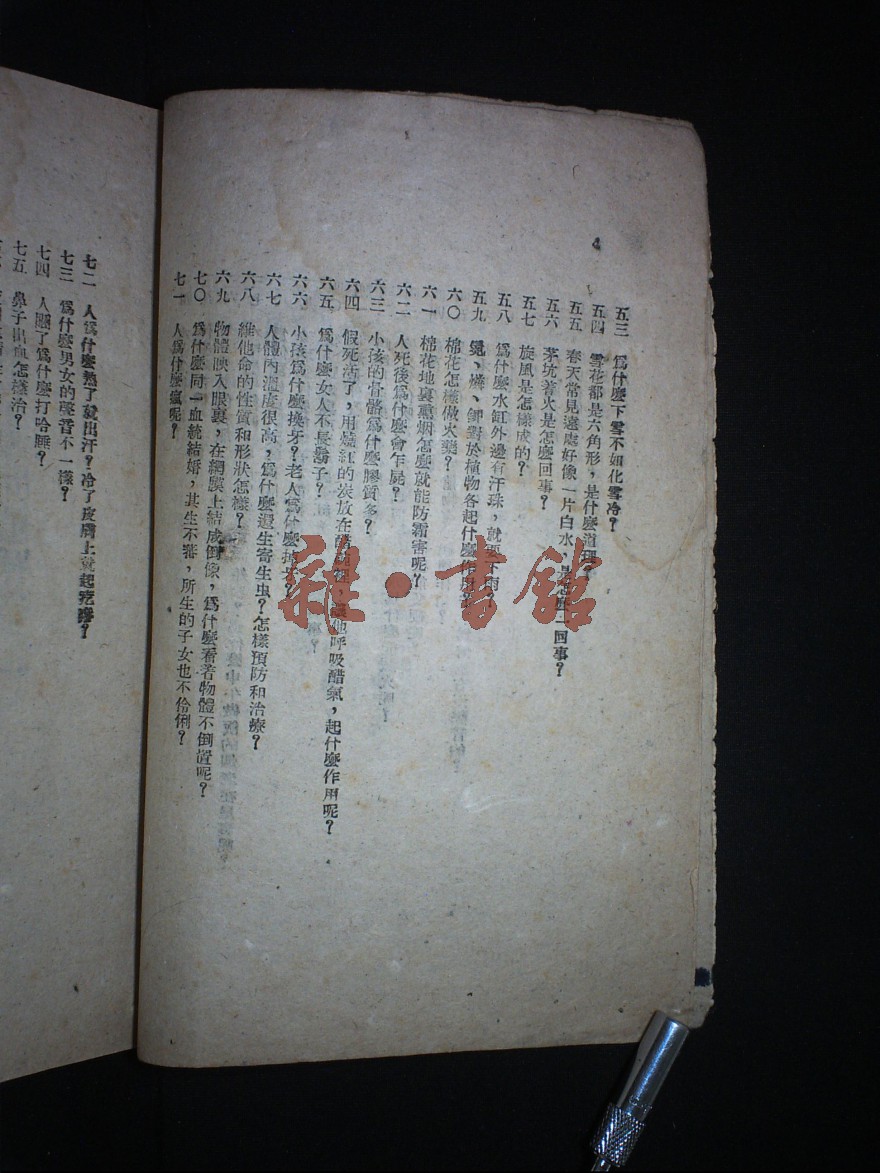 4
五三 爲什麼下雪不如化雪冷？
五四 雪花都是六角形，是什麼道理？
五五 春天常見遠處好像一片白水，是怎麼一回事？
五六 茅坑着火是怎麼回事？
五七 旋風是怎樣成的？
五八 爲什麼水缸外邊有汗珠，就要下雨？
五九 氮、燐、鉀對於植物各起什麼作用？
六〇 棉花怎樣做火藥？
六一 棉花地裏熏烟怎麼就能防霜害呢？
六二 人死後爲什麼會乍屍？
六三 小孩的骨骼爲什麼膠質多？
六四 假死活了，用燒紅的炭放在醋碗裡，讓他呼吸醋氣，起什麼作用呢？
六五 爲什麼女人不長鬍子？
六六 小孩爲什麼換牙？老人爲什麼掉牙？
六七 人體內溫度很高，爲什麼還生寄生虫？怎樣預防和治療？
六八 維他命的性質和形狀怎樣？
六九 物體映入眼裏，在網膜上結成倒像，爲什麼看着物體不倒置呢？
七〇 爲什麼同一血統結婚，其生不蕃，所生的子女也不伶俐？
七一 人爲什麼瘋呢？
七二 人爲什麼熱了就出汗？冷了皮膚上就起疙瘩？
七三 爲什麼男女的聲音不一樣？
七四 人睏了爲什麼打哈睡？
七五 鼻子出血怎樣治？
雜·書館